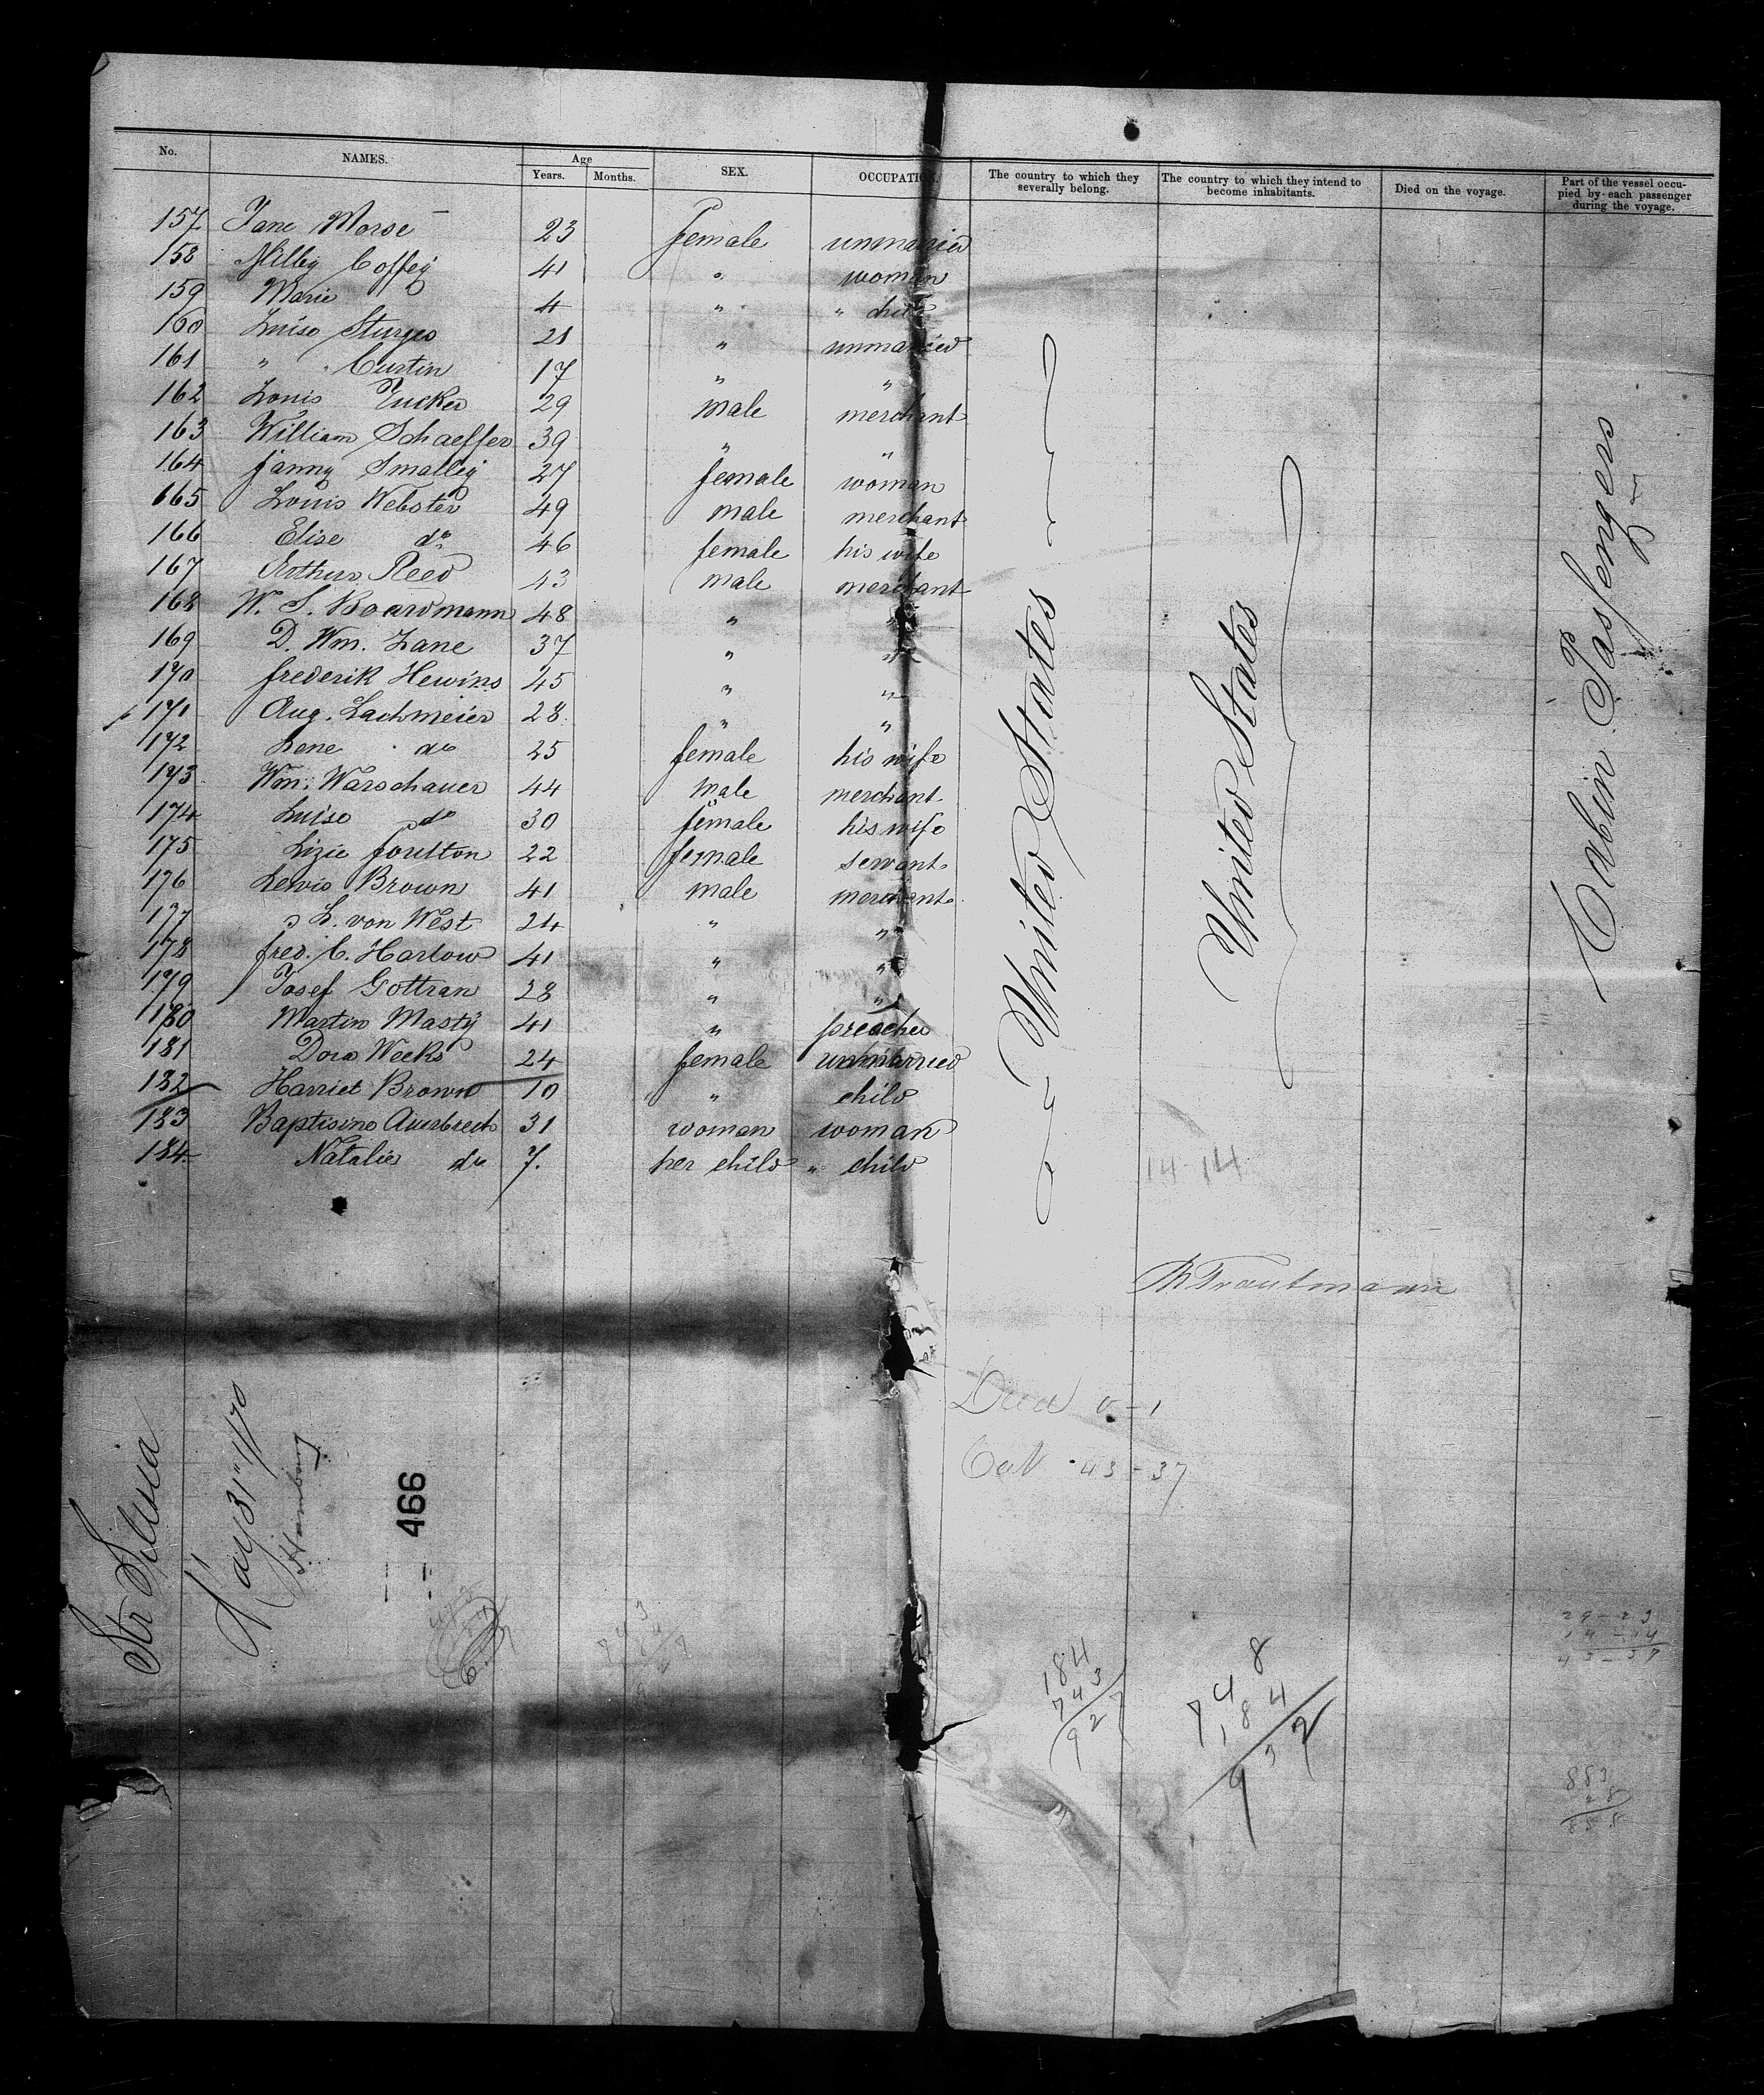 No. NAMES. Age Years. Months. SEX. OCCUPATION. The country to which they severally belong. The country to which they intend to become inhabitants. Died on the voyage. Part of the vessel occupied by each passenger during the voyage.
157 Jane Morse 23 female unmarried
158 Milby Coffey 41 " woman
159 Marie 4 " " child
160 Luise Sturges 21 " unmarried
161 " " Curtin 17 " "
162 Louis Tucker 29 male merchant
163 William Schaeffer 39 " "
164 Fanny Smalley 27 female woman
165 Louis Webster 49 male merchant
166 Elise do 46 female his wife
167 Arthur Reed 43 male merchant
168 W. S. Boardmann 48 " "
169 D. Wm. Lane 37 " "
170 Frederik Hewins 45 " "
171 Aug. Lachmeier 28 " "
172 Lene do 25 female his wife
173 Wm. Warschauer 44 male merchant
174 Luise do 30 female his wife
175 Lizie Foulton 22 female servant
176 Lewis Brown 41 male merchant
177 L. von West 24 " "
178 Fred. C. Harlow 41 " "
179 Josef Gottran 28 " "
180 Martin Masty 41 " preacher
181 Dora Weeks 24 female unmarried
182 Harriet Brown 10 " child
183 Baptisine Auerbrech 31 woman woman
184 Natalie do 7. her child " child
United States
United States
Cabin Passengers
14-14
B Trautmann
Died 0-1
Cab 43-37
Str Silesia
May 31" 1/70
Hamburg
466
184
743
927
748
184
932
29-23
14-14
43-37